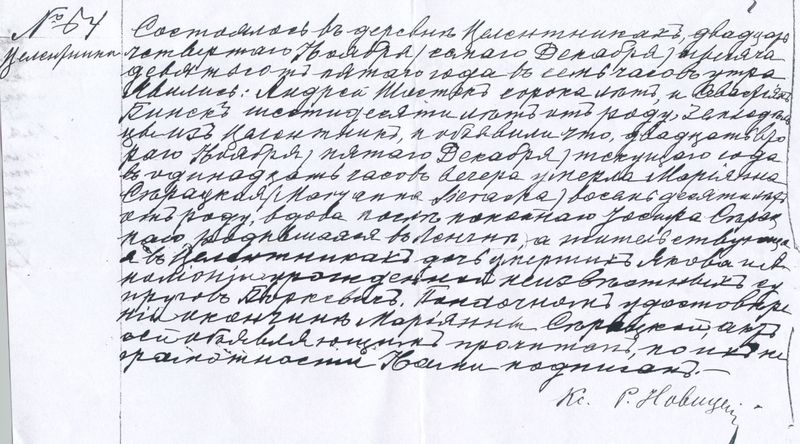 № 64
Целентники
Состоялось въ деревнѣ Целентникахъ, двадцать
четвертаго Ноября (седьмаго Декабря) тысяча
девятьсотъ пятаго года въ семь часовъ утра
Явились: Андрей Шостакъ сорока лѣтъ, и
шестидесяти лѣтъ отъ роду,
изъ Целентникъ, и объявили что, двадцать вто-
раго Ноября (пятаго Декабря) текущаго года
въ одинадцать часовъ вечера умерла Маріянна
Сѣрацкая (Maryanna Sieracka) восемьдесятъ лѣтъ
отъ роду, вдова послѣ покойнаго Іосифа Сѣрац-
каго родившаяся въ а жительствующа-
я въ Целентникахъ дочь умершихъ Якова и А-
полоніи урожденной неизвѣстныхъ су-
пруговъ Боркевичъ. По наочномъ удостовѣре-
ніи о кончинѣ Маріянны Сѣрацкой, актъ
сей объявляющимъ прочитанъ, по ихъ не-
грамотности Нами подписанъ.—
Кс. Р. Новицкій